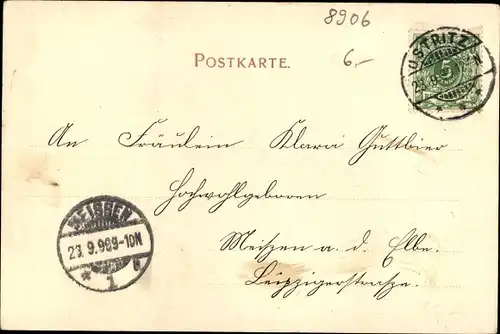 8906
POSTKARTE.
6,-
OSTRITZ
5
An Fräulein Klara Guttbier
Hochwohlgeboren
Meiszen a. d. Elbe.
Leipzigerstrasze.
MEISSEN
23.9.96 9-10N
* 1 c